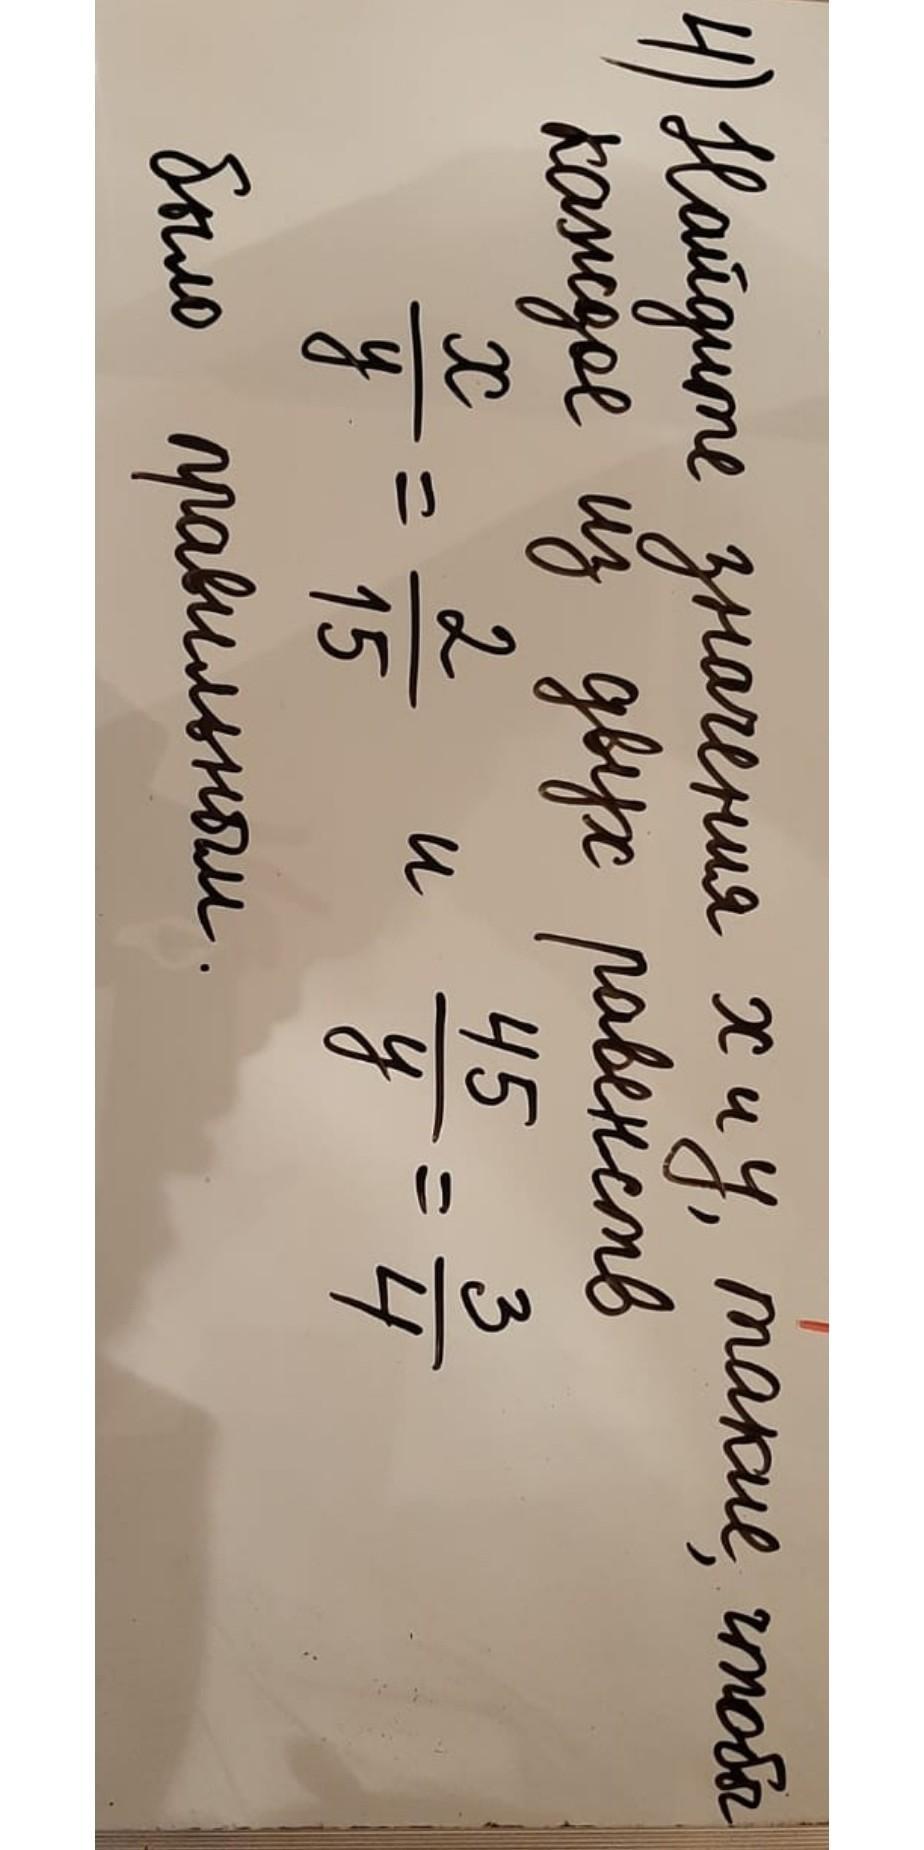 4) Найдите значения x и y, такие, чтобы
каждое из двух равенств
x/y = 2/15 и 45/y = 3/4
было правильным.